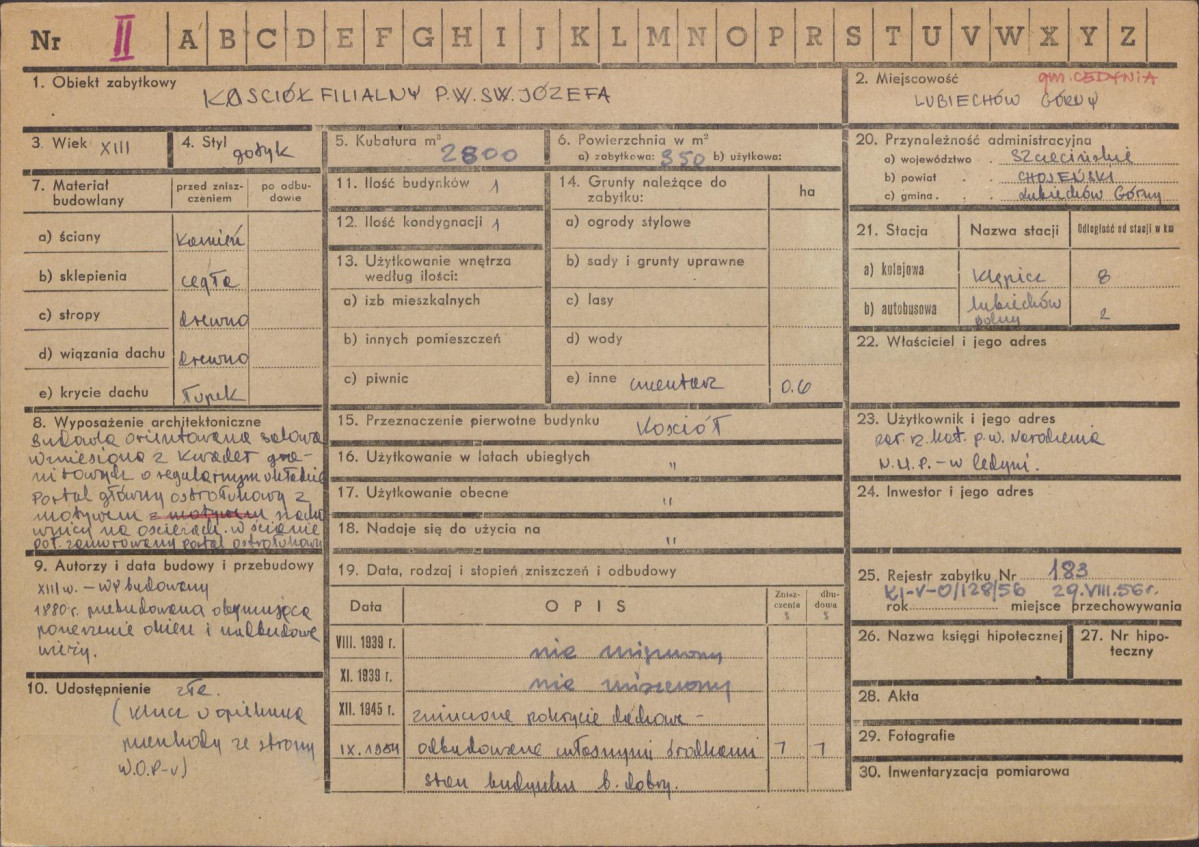 Nr II A B C D E F G H I J K L M N O P R S T U V W X Y Z
1. Obiekt zabytkowy
KOSCIÓŁ FILIALNY P.W. SW. JÓZEFA
2. Miejscowość gm. CEDYNIA
LUBIECHÓW GÓRNY
3. Wiek XIII
4. Styl gotyk
5. Kubatura m³ 2800
6. Powierzchnia w m²
a) zabytkowa: 350 b) użytkowa:
7. Materiał budowlany
przed znisz-
czeniem
po odbu-
dowie
a) ściany kamień
b) sklepienia cegła
c) stropy drewno
d) wiązania dachu drewno
e) krycie dachu łupek
8. Wyposażenie architektoniczne
Budowla orientowana salowa
wzniesiona z kwader gra-
nitowych o regularnym układzie
Portal główny ostrołukowy z
motywem z motywem
na ościeżach. w ścianie
poł. zamurowany portal ostrołukowy
9. Autorzy i data budowy i przebudowy
XIII w. – wybudowany
1880 r. przebudowana obejmująca
poszerzenie okien i nadbudowę
wieży.
10. Udostępnienie złe.
(klucz u opiekuna
ze strony
W.O.P-u)
11. Ilość budynków 1
12. Ilość kondygnacji 1
13. Użytkowanie wnętrza
według ilości:
a) izb mieszkalnych
b) innych pomieszczeń
c) piwnic
14. Grunty należące do
zabytku:
ha
a) ogrody stylowe
b) sady i grunty uprawne
c) lasy
d) wody
e) inne cmentarz 0.6
15. Przeznaczenie pierwotne budynku Kościół
16. Użytkowanie w latach ubiegłych "
17. Użytkowanie obecne "
18. Nadaje się do użycia na "
19. Data, rodzaj i stopień zniszczeń i odbudowy
Data
OPIS
Znisz-
czenie
%
dbu-
dowa
%
VIII. 1939 r. nie
XI. 1939 r. nie
XII. 1945 r. zniszczone pokrycie dachowe –
IX. 1964 odbudowane własnymi środkami 7 7
stan budynku b. dobry.
20. Przynależność administracyjna
a) województwo . Szczecińskie
b) powiat . . CHOJEŃSKI
c) gmina . . . Lubiechów Górny
21. Stacja
Nazwa stacji
Odległość od stacji w km
a) kolejowa Klępicz 8
b) autobusowa Lubiechów
Dolny 2
22. Właściciel i jego adres
23. Użytkownik i jego adres
par. rz. kat. p.w. Narodzenia
N.M.P. – w Cedyni.
24. Inwestor i jego adres
25. Rejestr zabytku Nr 183
KI-V-0/128/56 29.VIII.56 r.
rok miejsce przechowywania
26. Nazwa księgi hipotecznej
27. Nr hipo-
teczny
28. Akta
29. Fotografie
30. Inwentaryzacja pomiarowa